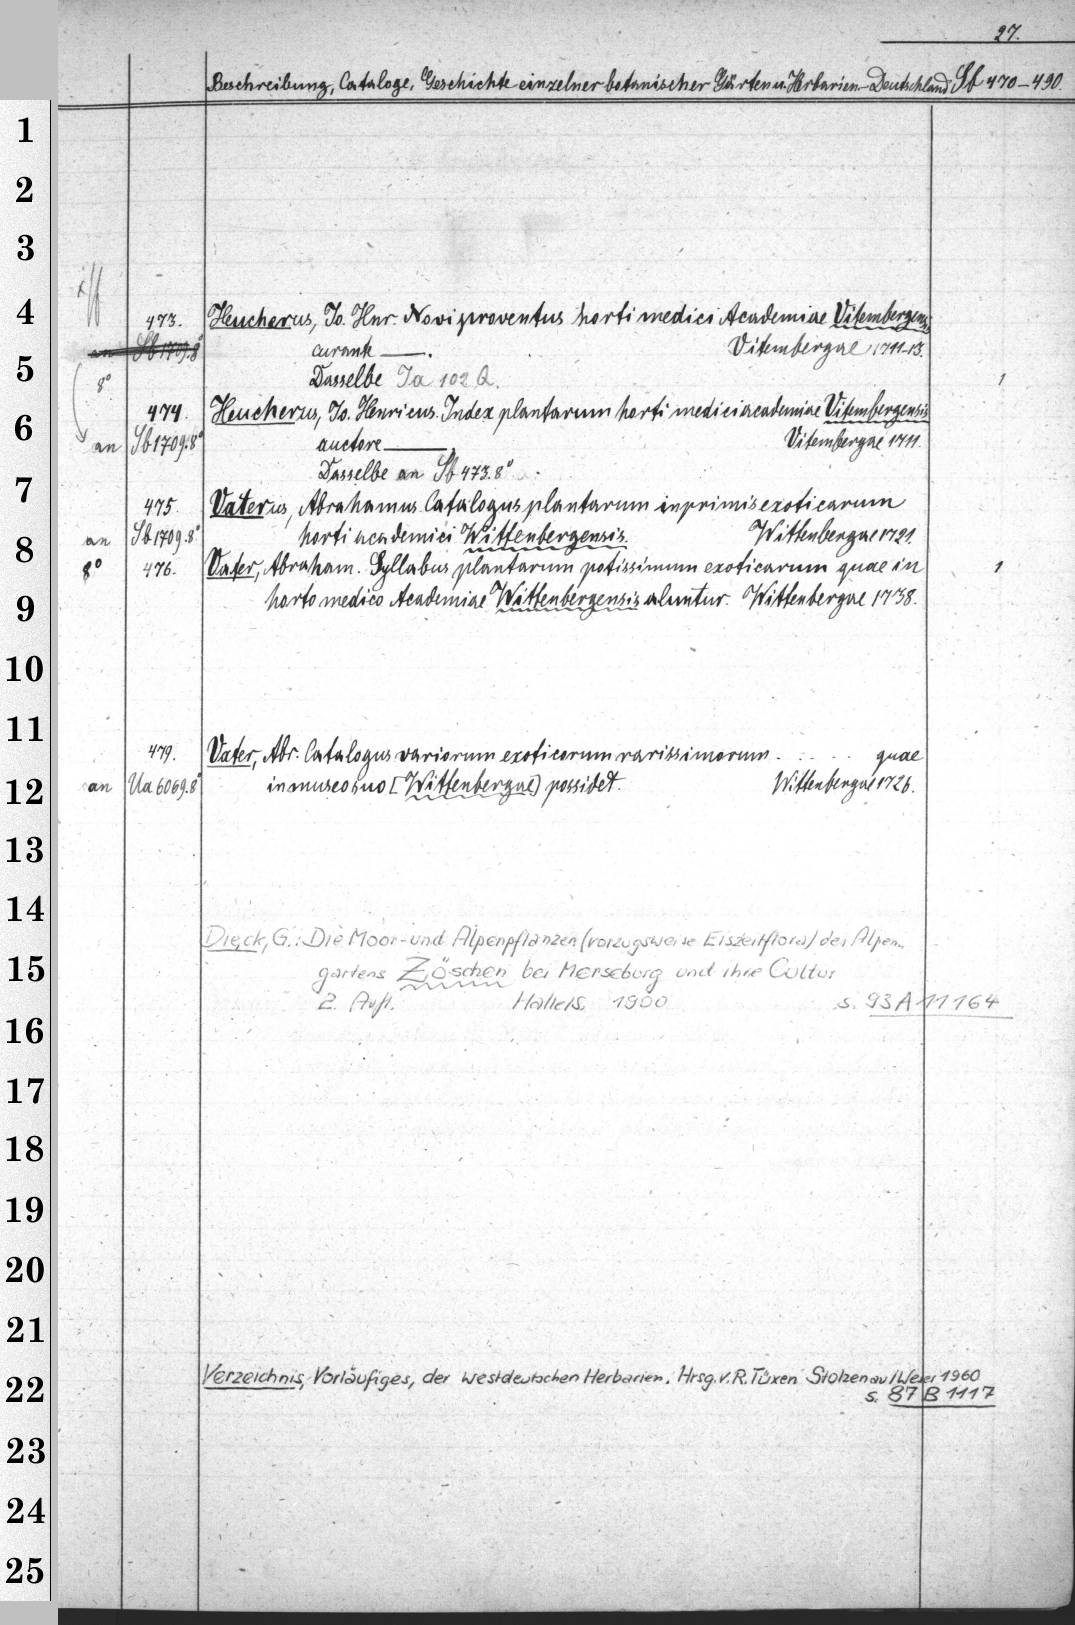 27.
Beschreibung, Cataloge, Geschichte einzelner botanischer Gärten u. Herbarien – Deutschland Sb 470–490.
1
2
3
4 473. Heucherus, Jo. Hnr. Novi proventus horti medici Academiae Vitembergensis
an Sb 1709.8° curante ——. Vitembergae 1711–13.
5 8° Dasselbe Ja 102 Q. 1
6 474. Heucherus, Jo. Henricus. Index plantarum horti medici academiae Vitembergensis
an Sb 1709.8° auctore ——. Vitembergae 1711.
Dasselbe an Sb 473.8°
7 475. Vaterus, Abrahamus. Catalogus plantarum inprimis exoticarum
8 an Sb 1709.8° horti academici Wittenbergensis. Wittenbergae 1721.
8° 476. Vater, Abraham. Syllabus plantarum potissimum exoticarum quae in 1
9 horto medico Academiae Wittenbergensis aluntur. Wittenbergae 1738.
10
11
479. Vater, Abr. Catalogus variorum exoticorum rarissimorum . . . . . quae
12 an Ua 6069.8° in museo suo [Wittenbergae] possidet. Wittenbergae 1726.
13
14
Dieck, G.: Die Moor- und Alpenpflanzen (vorzugsweise Eiszeitflora) des Alpen-
15 gartens Zöschen bei Merseburg und ihre Cultur
2. Aufl. Halle/S. 1900 s. 93 A 11164
16
17
18
19
20
21
22 Verzeichnis, Vorläufiges, der westdeutschen Herbarien. Hrsg. v. R. Tüxen Stolzenau/Weser 1960
s. 87 B 1117
23
24
25